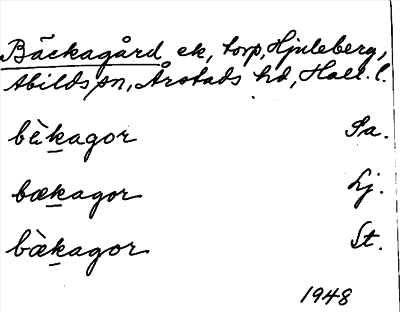 Bäckagård ek, torp, Hjuleberg,
Abilds sn, Årstads hd, Hall. l.
bèkagor Sa.
bækagor Lj.
bàkagor St.
1948